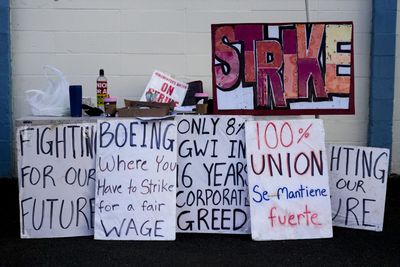 STRIKE
ON
STRIKE
FIGHTING
FOR OUR
FUTURE
BOEING
Where You
Have to Strike
for a fair
WAGE
ONLY 8%
GWI IN
16 YEARS
CORPORATE
GREED
100%
UNION
Se Mantiene
fuerte
HTING
OUR
URE